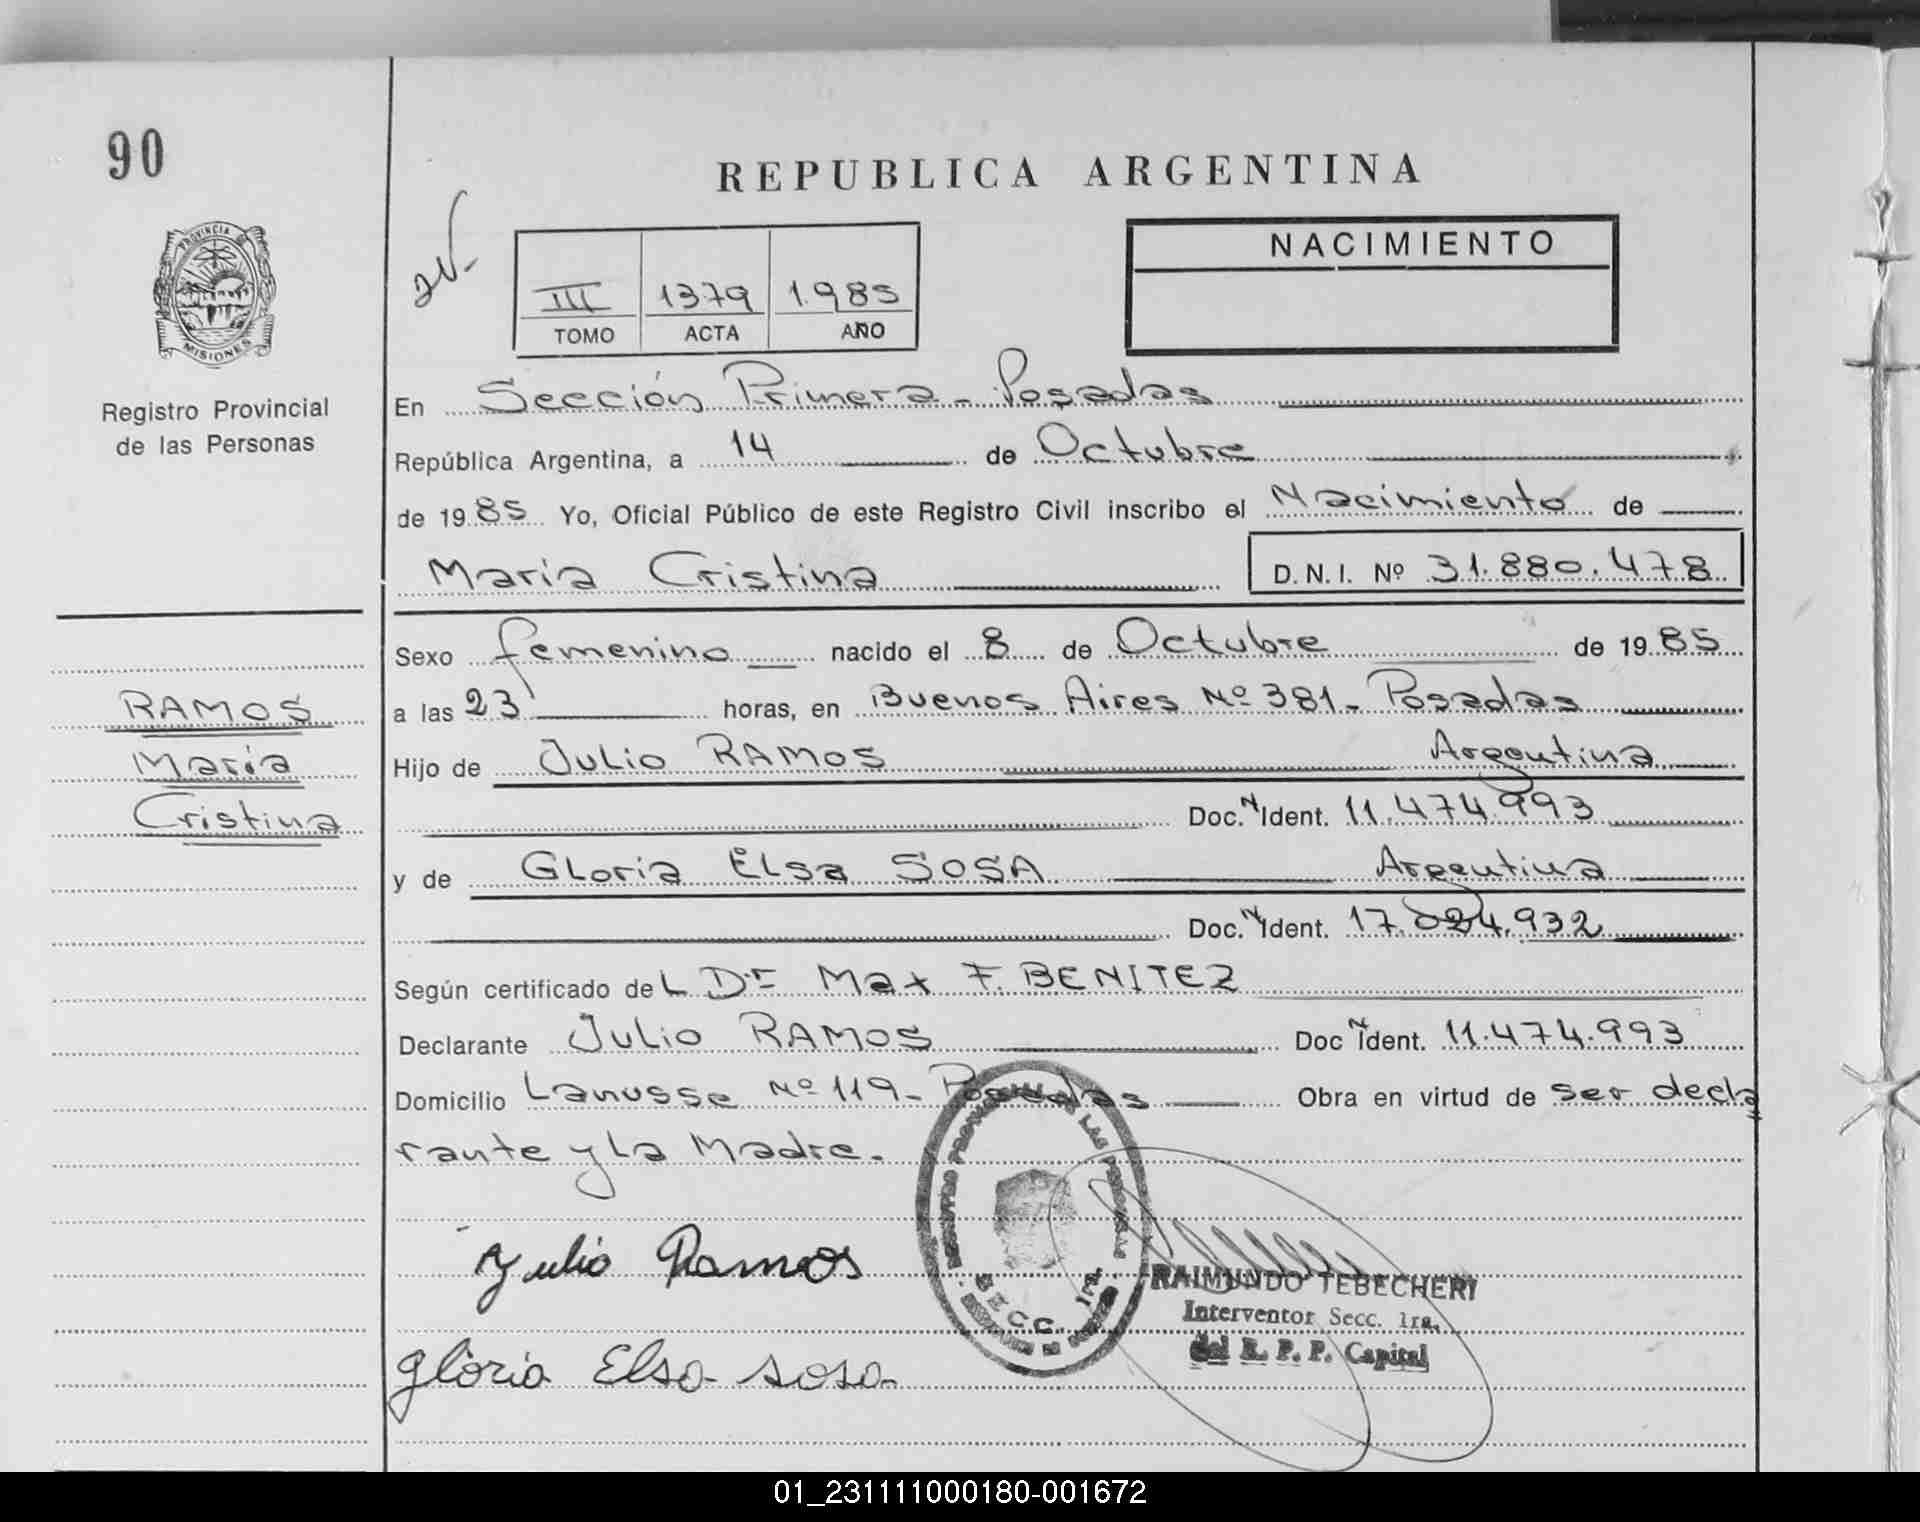 90
REPUBLICA ARGENTINA
PROVINCIA DE
MISIONES
Registro Provincial
de las Personas
NACIMIENTO
III 1379 1.985
TOMO ACTA AÑO
En Sección Primera - Posadas
República Argentina, a 14 de Octubre
de 1985 Yo, Oficial Público de este Registro Civil inscribo el Nacimiento de
María Cristina D.N.I. Nº 31.880.478
Sexo femenino nacido el 8 de Octubre de 1985
RAMOS
María
Cristina
a las 23 horas, en Buenos Aires Nº 381 - Posadas
Hijo de Julio RAMOS Argentina
Doc. N Ident. 11.474.993
y de Gloria Elsa SOSA Argentina
Doc. N Ident. 17.024.932
Según certificado del Dr Max F. BENITEZ
Declarante Julio RAMOS Doc N Ident. 11.474.993
Domicilio Lanusse Nº 119 - Posadas Obra en virtud de ser decla
rante y la Madre.
Julio Ramos
SECC. 1ra.
RAIMUNDO TEBECHERI
Interventor Secc. 1ra.
del R. P. P. Capital
Gloria Elsa Sosa
01_231111000180-001672